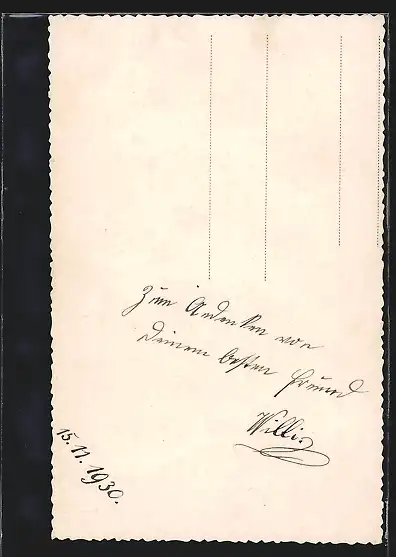 Zum Andenken von
Deinem besten Freund
Willi.
15.11.1930.